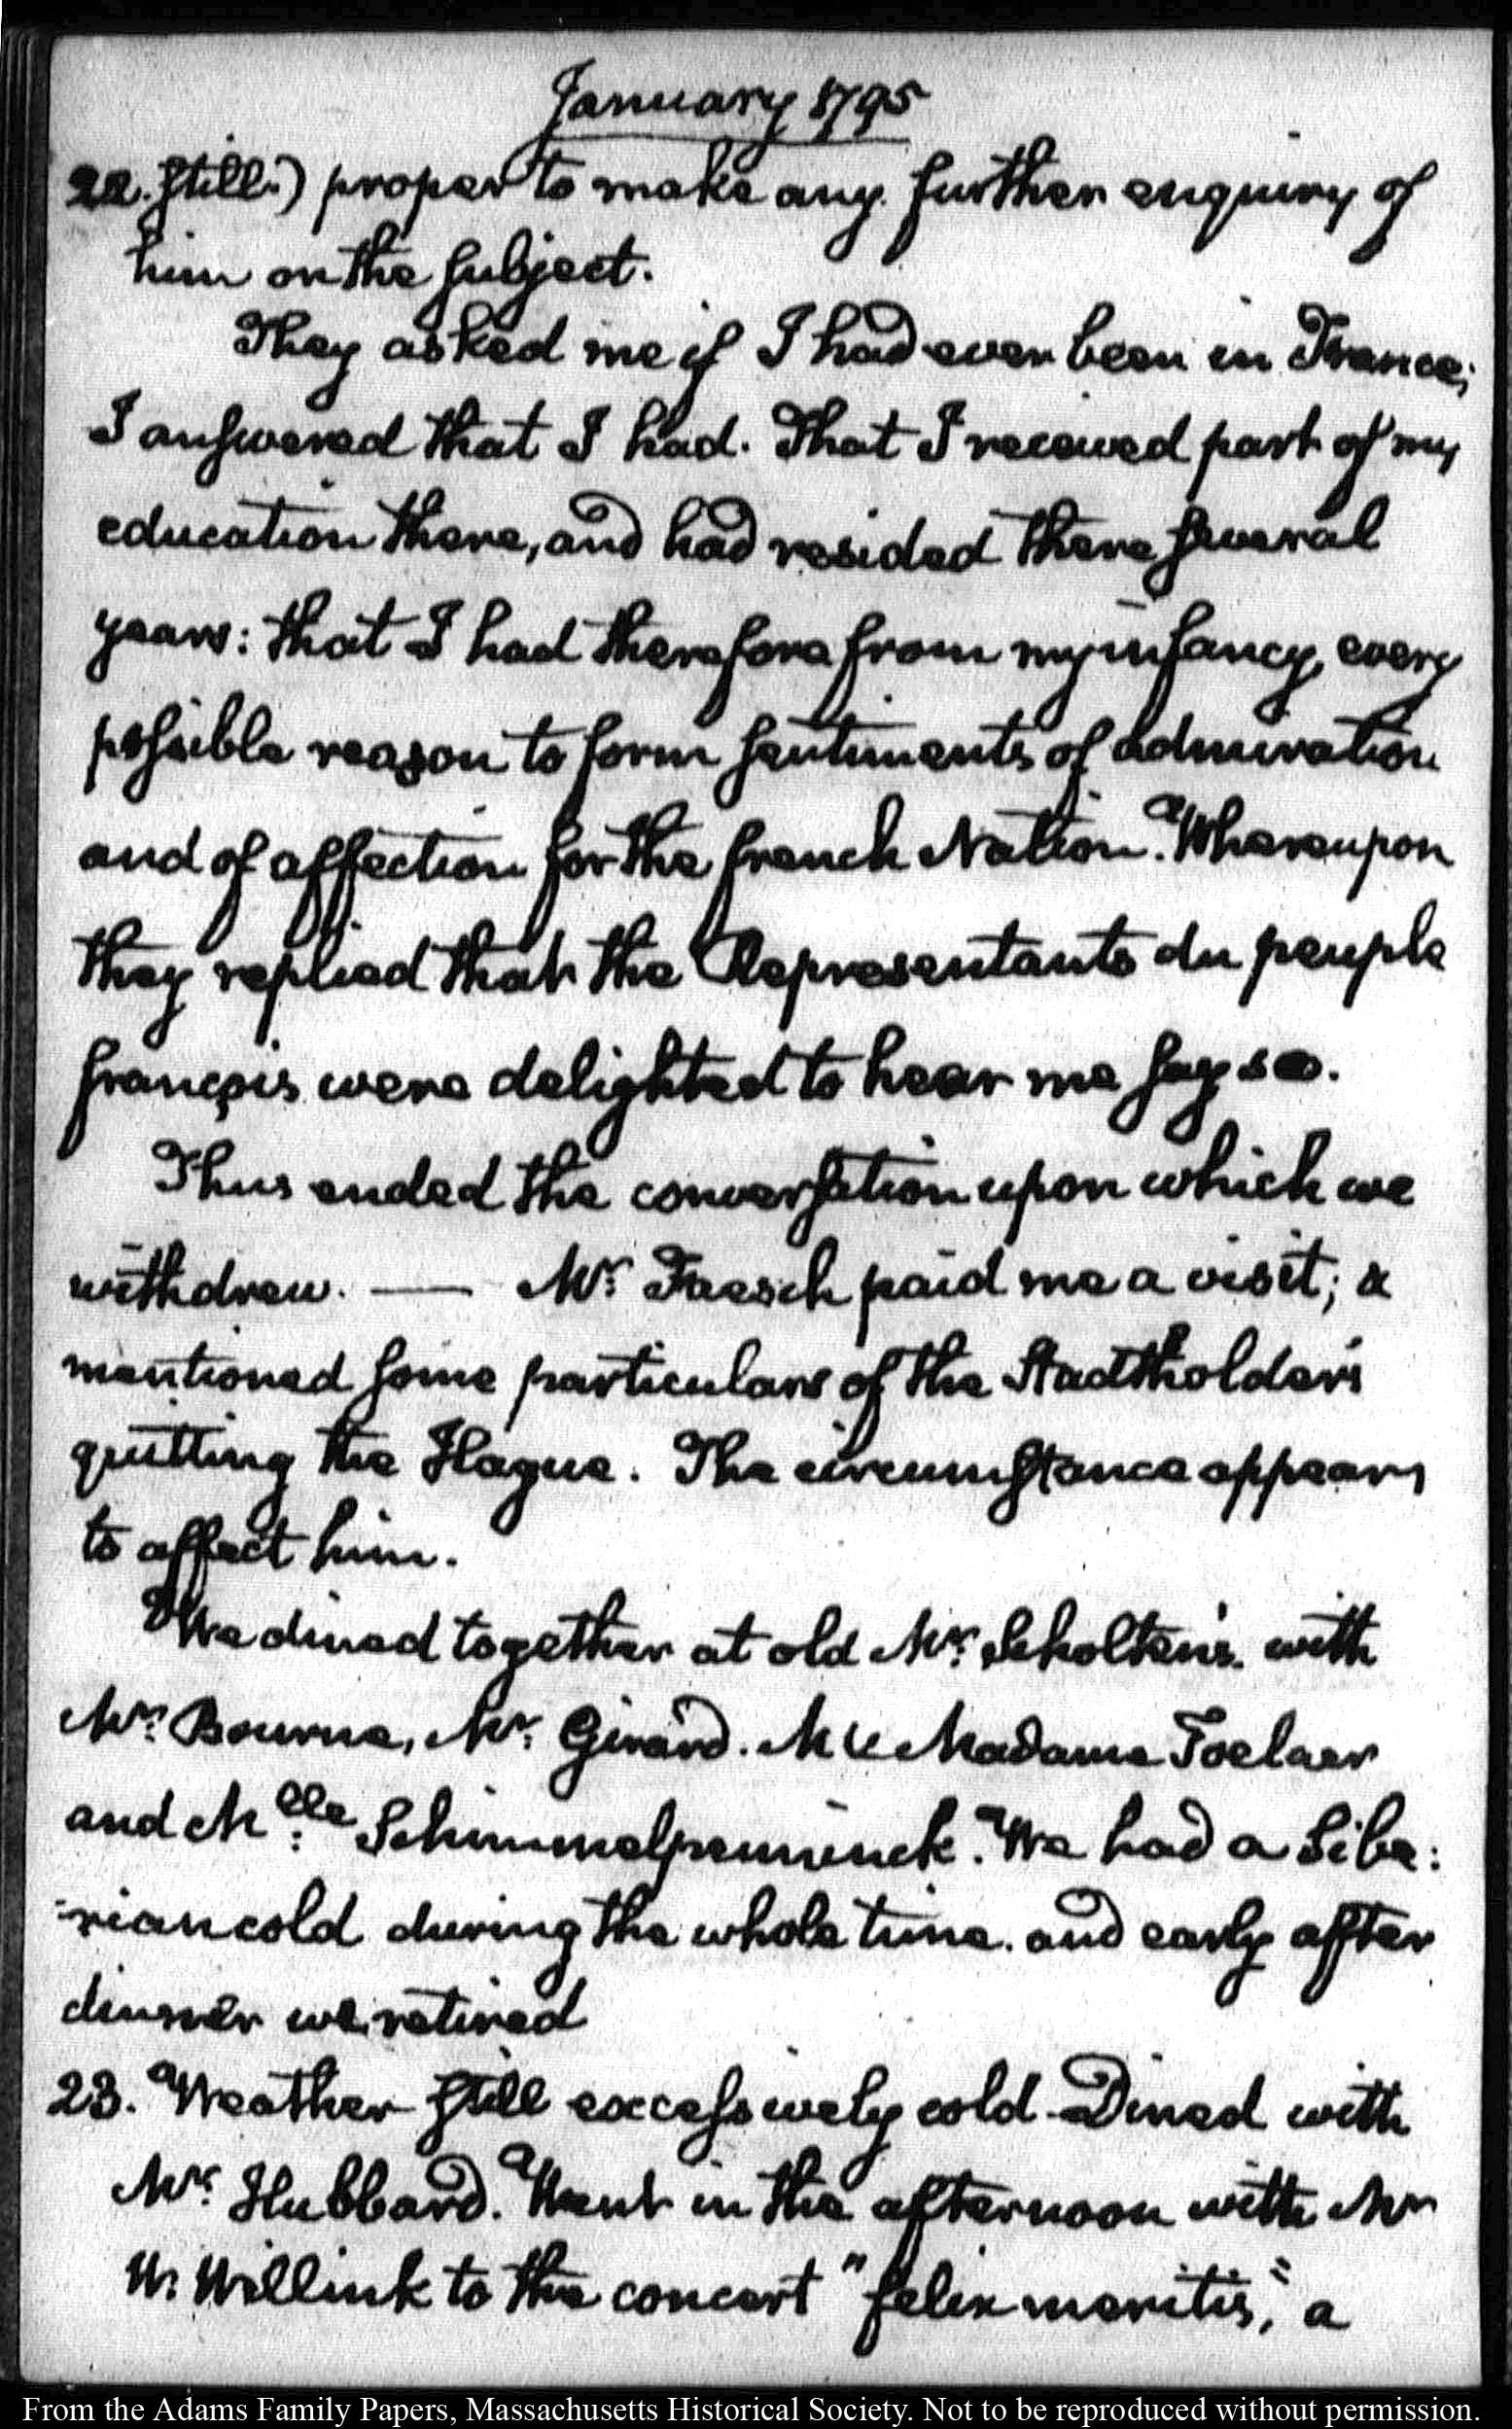 January 1795
22. still.) proper to make any further enquiry of
him on the subject.
They asked me if I had ever been in France;
I answered that I had. That I received part of my
education there, and had resided there several
years: that I had therefore from my infancy, every
possible reason to form sentiments of admiration
and of affection for the french Nation. Whereupon
they replied that the Representants du peuple
françois were delighted to hear me say so.
Thus ended the conversation upon which we
withdrew. — Mr. Faesch paid me a visit; &
mentioned some particulars of the Stadtholder's
quitting the Hague. The circumstance appears
to affect him.
We dined together at old Mr. Scholten's. with
Mr. Bourne, Mr. Girard. M & Madame Toelaer
and Mlle. Schimmelpenninck. We had a Sibe:
-rian cold during the whole time. and early after
dinner we retired
23. Weather still excessively cold. Dined with
Mr. Hubbard. Went in the afternoon with Mr
W. Willink to the concert "felix meritis," a
From the Adams Family Papers, Massachusetts Historical Society. Not to be reproduced without permission.